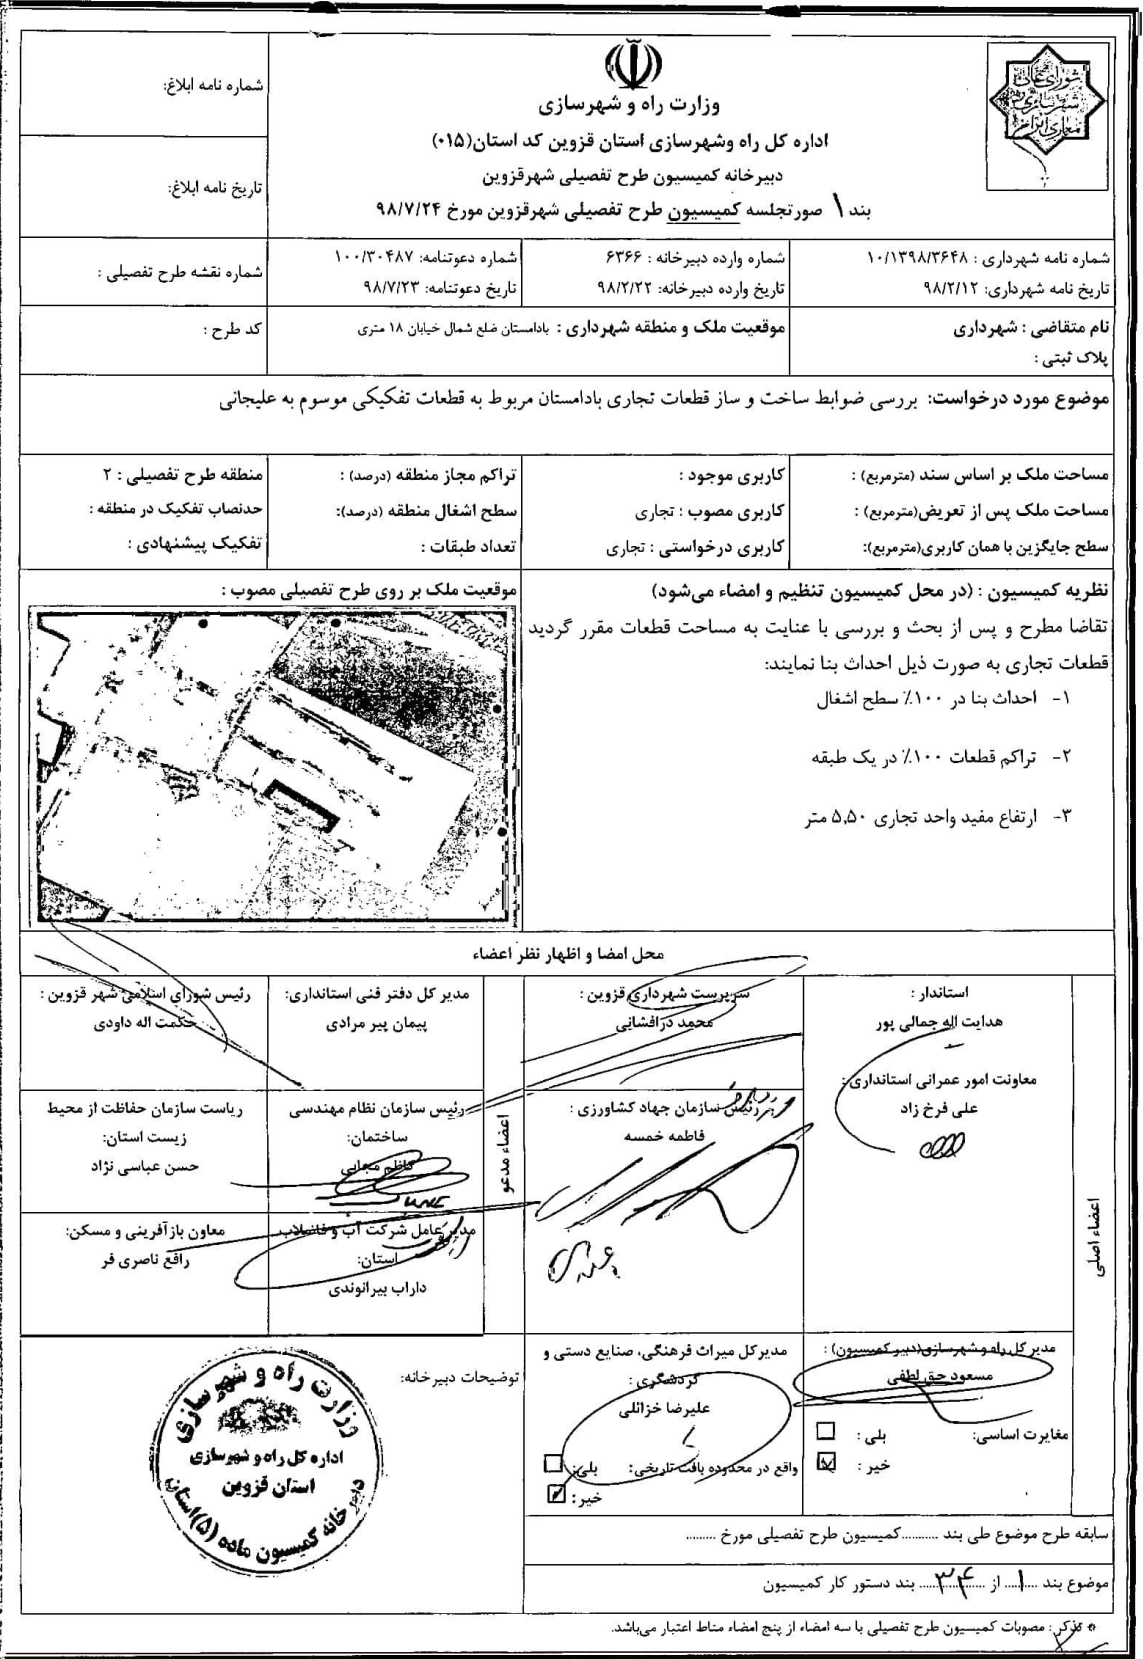 شورای عالی
شهرسازی و
معماری ایران
وزارت راه و شهرسازی
اداره کل راه وشهرسازی استان قزوین کد استان(۰۱۵)
دبیرخانه کمیسیون طرح تفصیلی شهرقزوین
بند ۱ صورتجلسه کمیسیون طرح تفصیلی شهرقزوین مورخ ۹۸/۷/۲۴
شماره نامه ابلاغ:
تاریخ نامه ابلاغ:
شماره نامه شهرداری : ۱۰/۱۳۹۸/۳۶۴۸
تاریخ نامه شهرداری: ۹۸/۲/۱۲
شماره وارده دبیرخانه : ۶۳۶۶
تاریخ وارده دبیرخانه: ۹۸/۲/۲۲
شماره دعوتنامه: ۱۰۰/۳۰۴۸۷
تاریخ دعوتنامه: ۹۸/۷/۲۳
شماره نقشه طرح تفصیلی :
نام متقاضی : شهرداری
پلاک ثبتی :
موقعیت ملک و منطقه شهرداری : بادامستان ضلع شمال خیابان ۱۸ متری
کد طرح :
موضوع مورد درخواست: بررسی ضوابط ساخت و ساز قطعات تجاری بادامستان مربوط به قطعات تفکیکی موسوم به علیجانی
مساحت ملک بر اساس سند (مترمربع) :
مساحت ملک پس از تعریض(مترمربع) :
سطح جایگزین با همان کاربری(مترمربع):
کاربری موجود :
کاربری مصوب : تجاری
کاربری درخواستی : تجاری
تراکم مجاز منطقه (درصد) :
سطح اشغال منطقه (درصد):
تعداد طبقات :
منطقه طرح تفصیلی : ۲
حدنصاب تفکیک در منطقه :
تفکیک پیشنهادی :
نظریه کمیسیون : (در محل کمیسیون تنظیم و امضاء می‌شود)
تقاضا مطرح و پس از بحث و بررسی با عنایت به مساحت قطعات مقرر گردید
قطعات تجاری به صورت ذیل احداث بنا نمایند:
۱- احداث بنا در ۱۰۰٪ سطح اشغال
۲- تراکم قطعات ۱۰۰٪ در یک طبقه
۳- ارتفاع مفید واحد تجاری ۵,۵۰ متر
موقعیت ملک بر روی طرح تفصیلی مصوب :
محل امضا و اظهار نظر اعضاء
اعضاء اصلی
استاندار :
هدایت اله جمالی پور
معاونت امور عمرانی استانداری :
علی فرخ زاد
سرپرست شهرداری قزوین :
محمد درافشانی
رئیس سازمان جهاد کشاورزی :
فاطمه خمسه
اعضاء مدعو
مدیر کل دفتر فنی استانداری:
پیمان پیر مرادی
رئیس شورای اسلامی شهر قزوین :
حکمت اله داودی
رئیس سازمان نظام مهندسی
ساختمان:
کاظم مجابی
ریاست سازمان حفاظت از محیط
زیست استان:
حسن عباسی نژاد
مدیر عامل شرکت آب و فاضلاب
استان:
داراب بیرانوندی
معاون بازآفرینی و مسکن:
رافع ناصری فر
مدیر کل راه و شهرسازی(دبیر کمیسیون) :
مسعود حق لطفی
مغایرت اساسی: بلی :
خیر :
مدیرکل میراث فرهنگی، صنایع دستی و
گردشگری :
علیرضا خزائلی
واقع در محدوده بافت تاریخی: بلی:
خیر:
توضیحات دبیرخانه:
وزارت راه و شهرسازی
اداره کل راه و شهرسازی
استان قزوین
دبیر خانه کمیسیون ماده (۵) استان
سابقه طرح موضوع طی بند ..........کمیسیون طرح تفصیلی مورخ ........
موضوع بند ....۱.... از ....۳۴.... بند دستور کار کمیسیون
* تذکر : مصوبات کمیسیون طرح تفصیلی با سه امضاء از پنج امضاء مناط اعتبار می‌باشد.